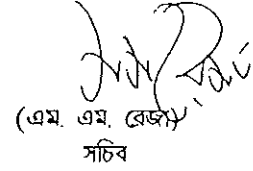 (এম. এম. রেজা)
সচিব